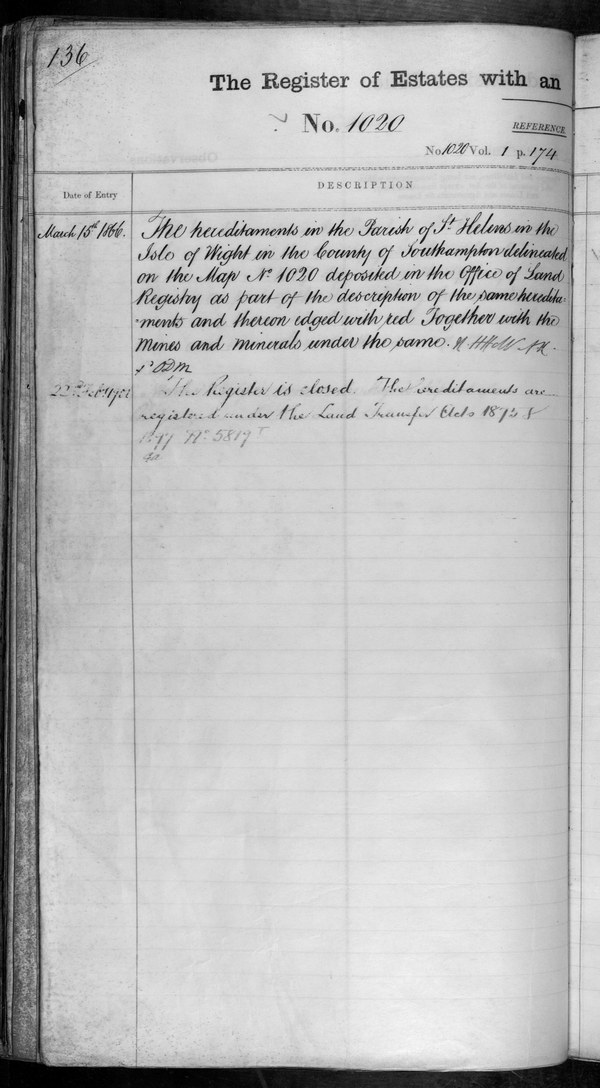 136
The Register of Estates with an
No. 1020
REFERENCE
No 1020 Vol. 1 p. 174
Date of Entry
DESCRIPTION
March 15th 1866.
The hereditaments in the Parish of St Helens in the
Isle of Wight in the County of Southampton delineated
on the Map No 1020 deposited in the Office of Land
Registry as part of the description of the same heredita
-ments and thereon edged with red Together with the
Mines and minerals under the same.
22nd
The Register is closed. The hereditaments are
registered under the Land Transfer Acts 1875 &
1897 No 5819